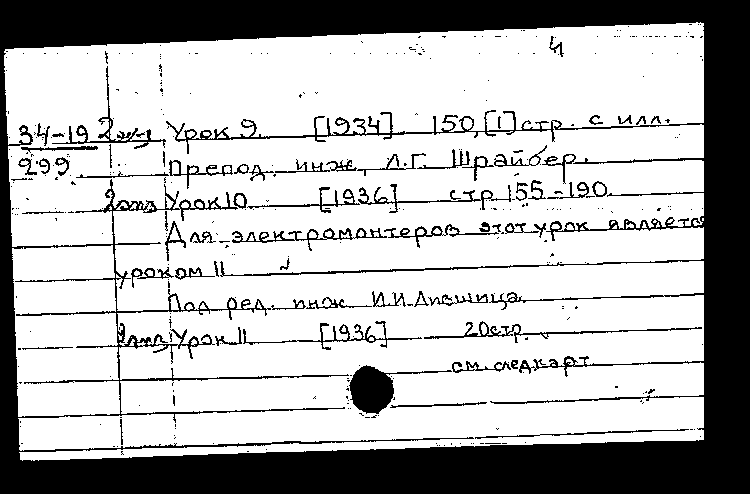 4
34-19 2 экз Урок 9. [1934] 150, [1] стр. с илл.
299 Препод. инж. Л.Г. Шрайбер.
2 экз Урок 10 [1936] стр 155-190
Для электромонтеров этот урок является
уроком 11
Под ред. инж. И.И. Лившица.
2 экз Урок 11. [1936] 20 стр.
см. след карт